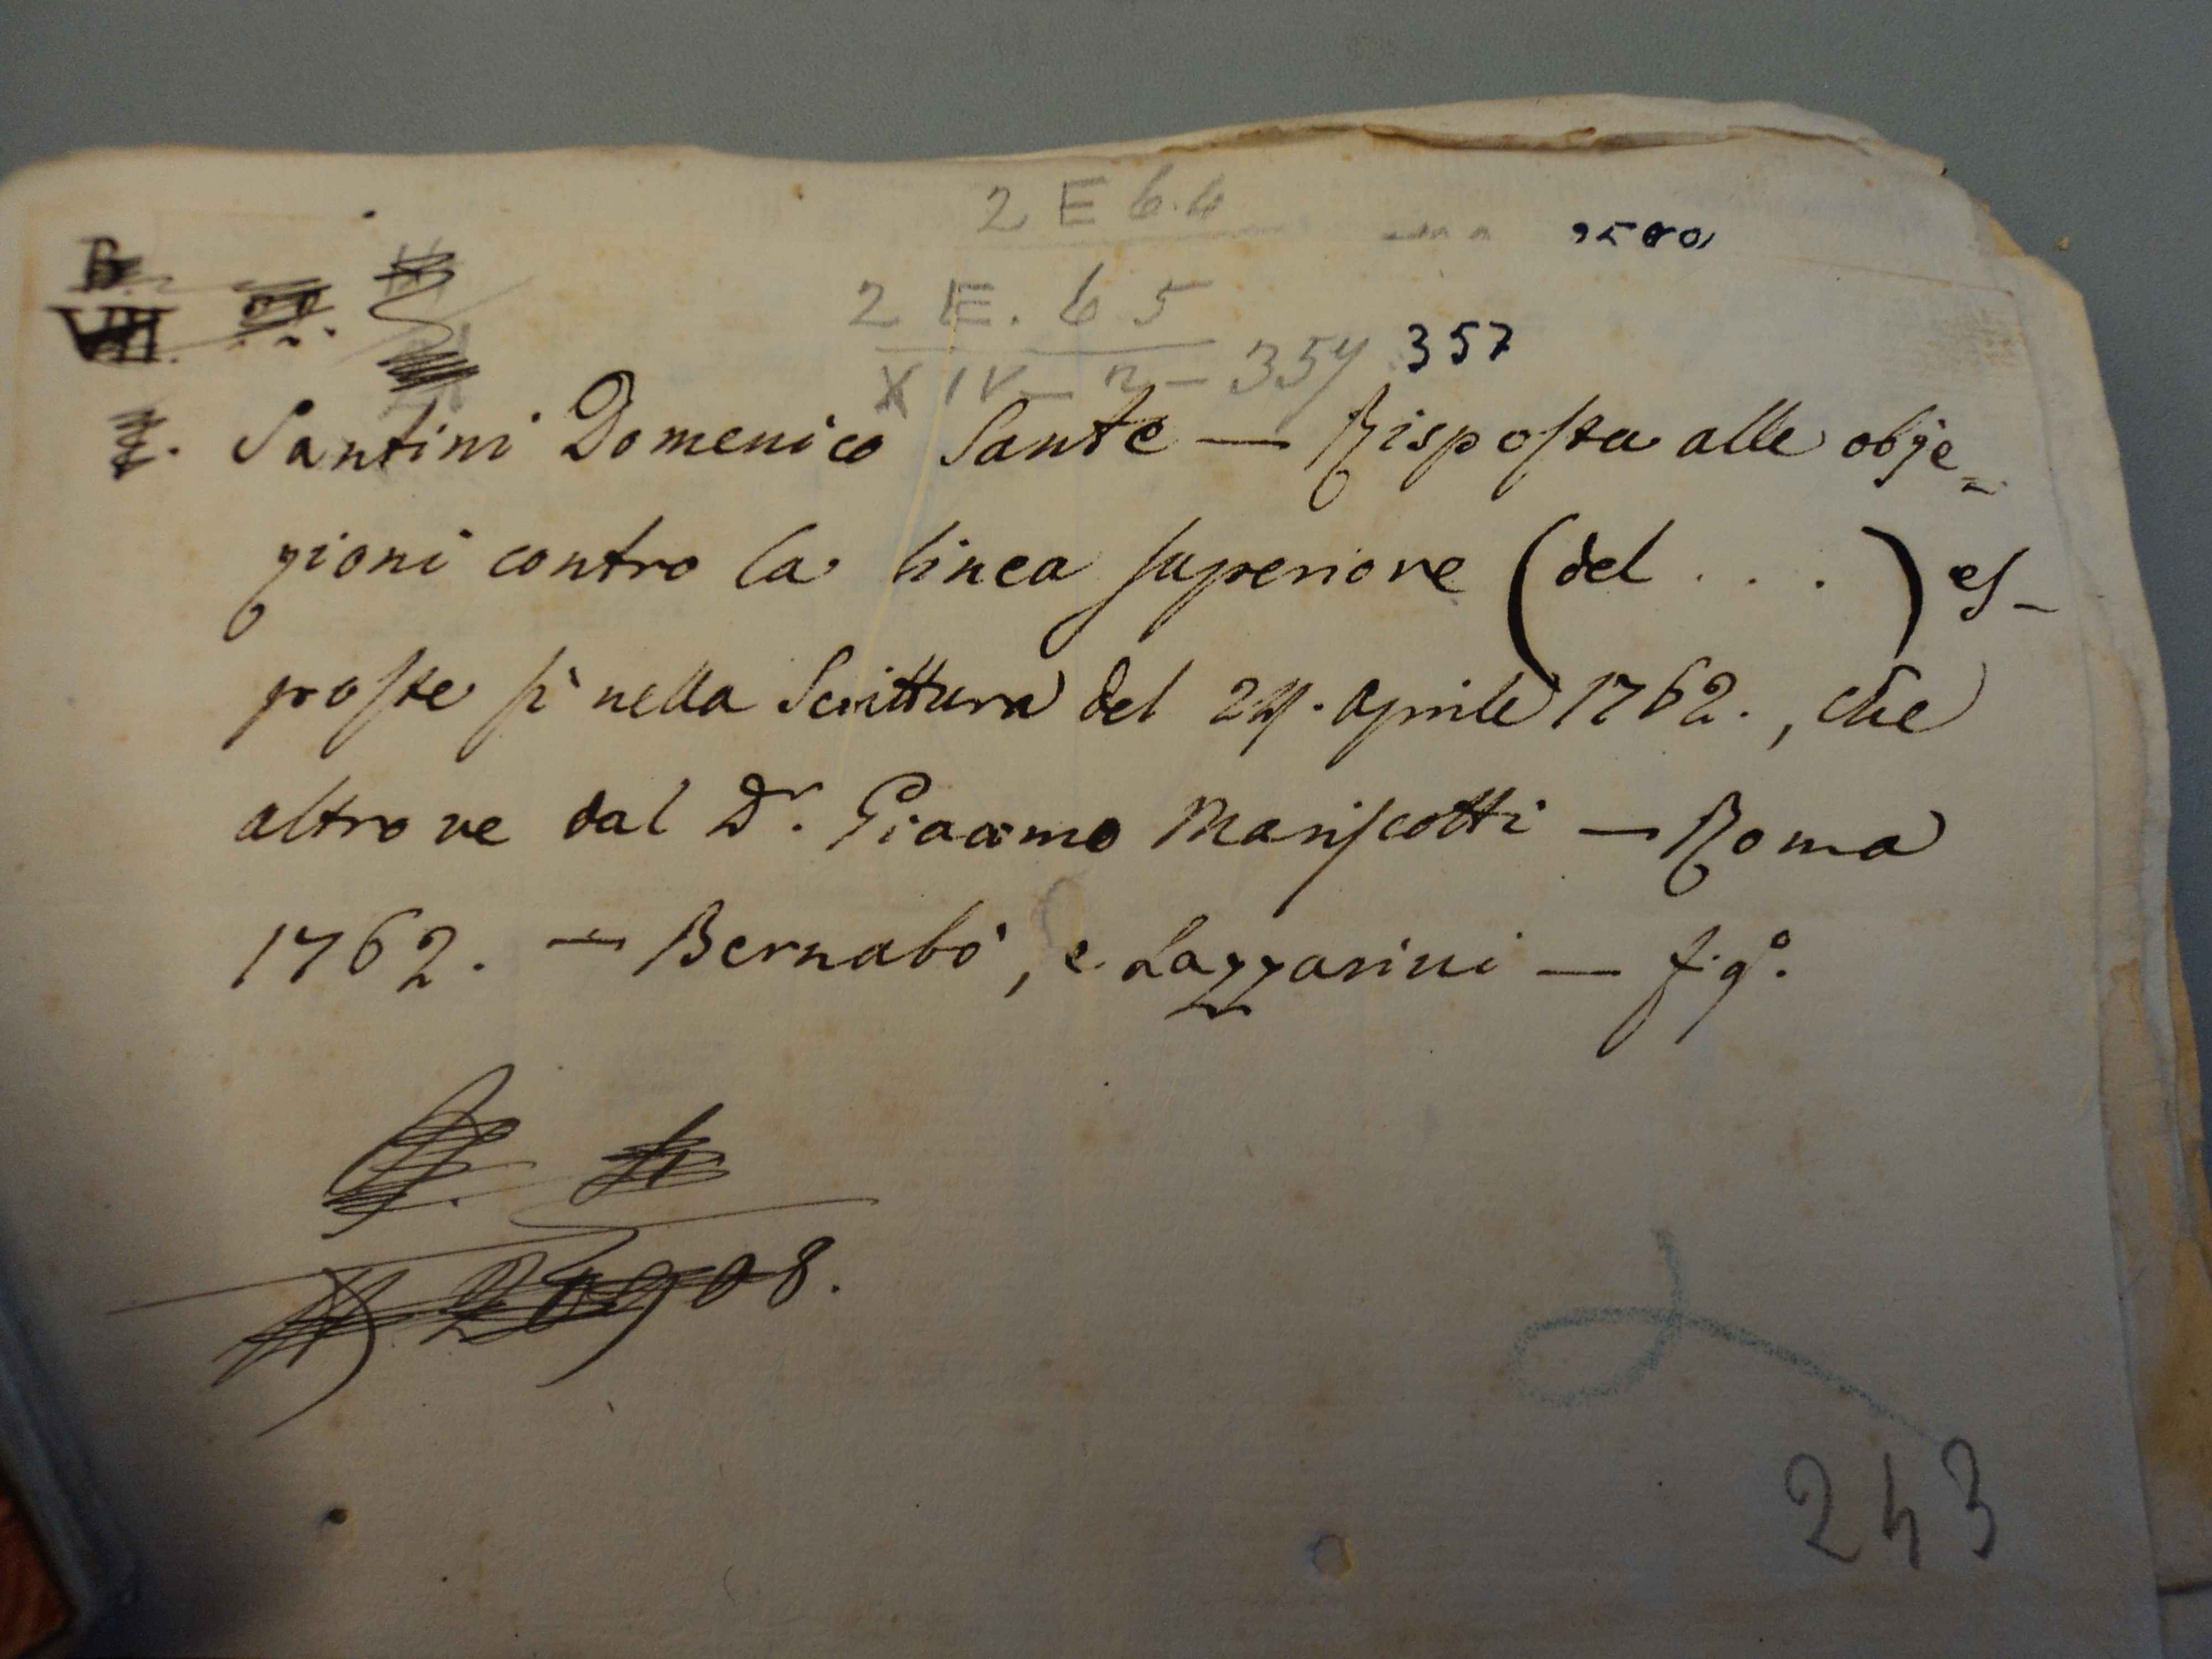 2 E 6.4
2 E. 65
XIV - n - 357 357
Santini Domenico Sante — Risposta alle obje-
zioni contro la linea superiore (del . . . ) es-
poste sì nella Scrittura del aprile 1762., che
altrove dal Dr. Giacomo Mariscotti — Roma
1762. — Bernabò, e Lazzarini — f.gº.
08.
243